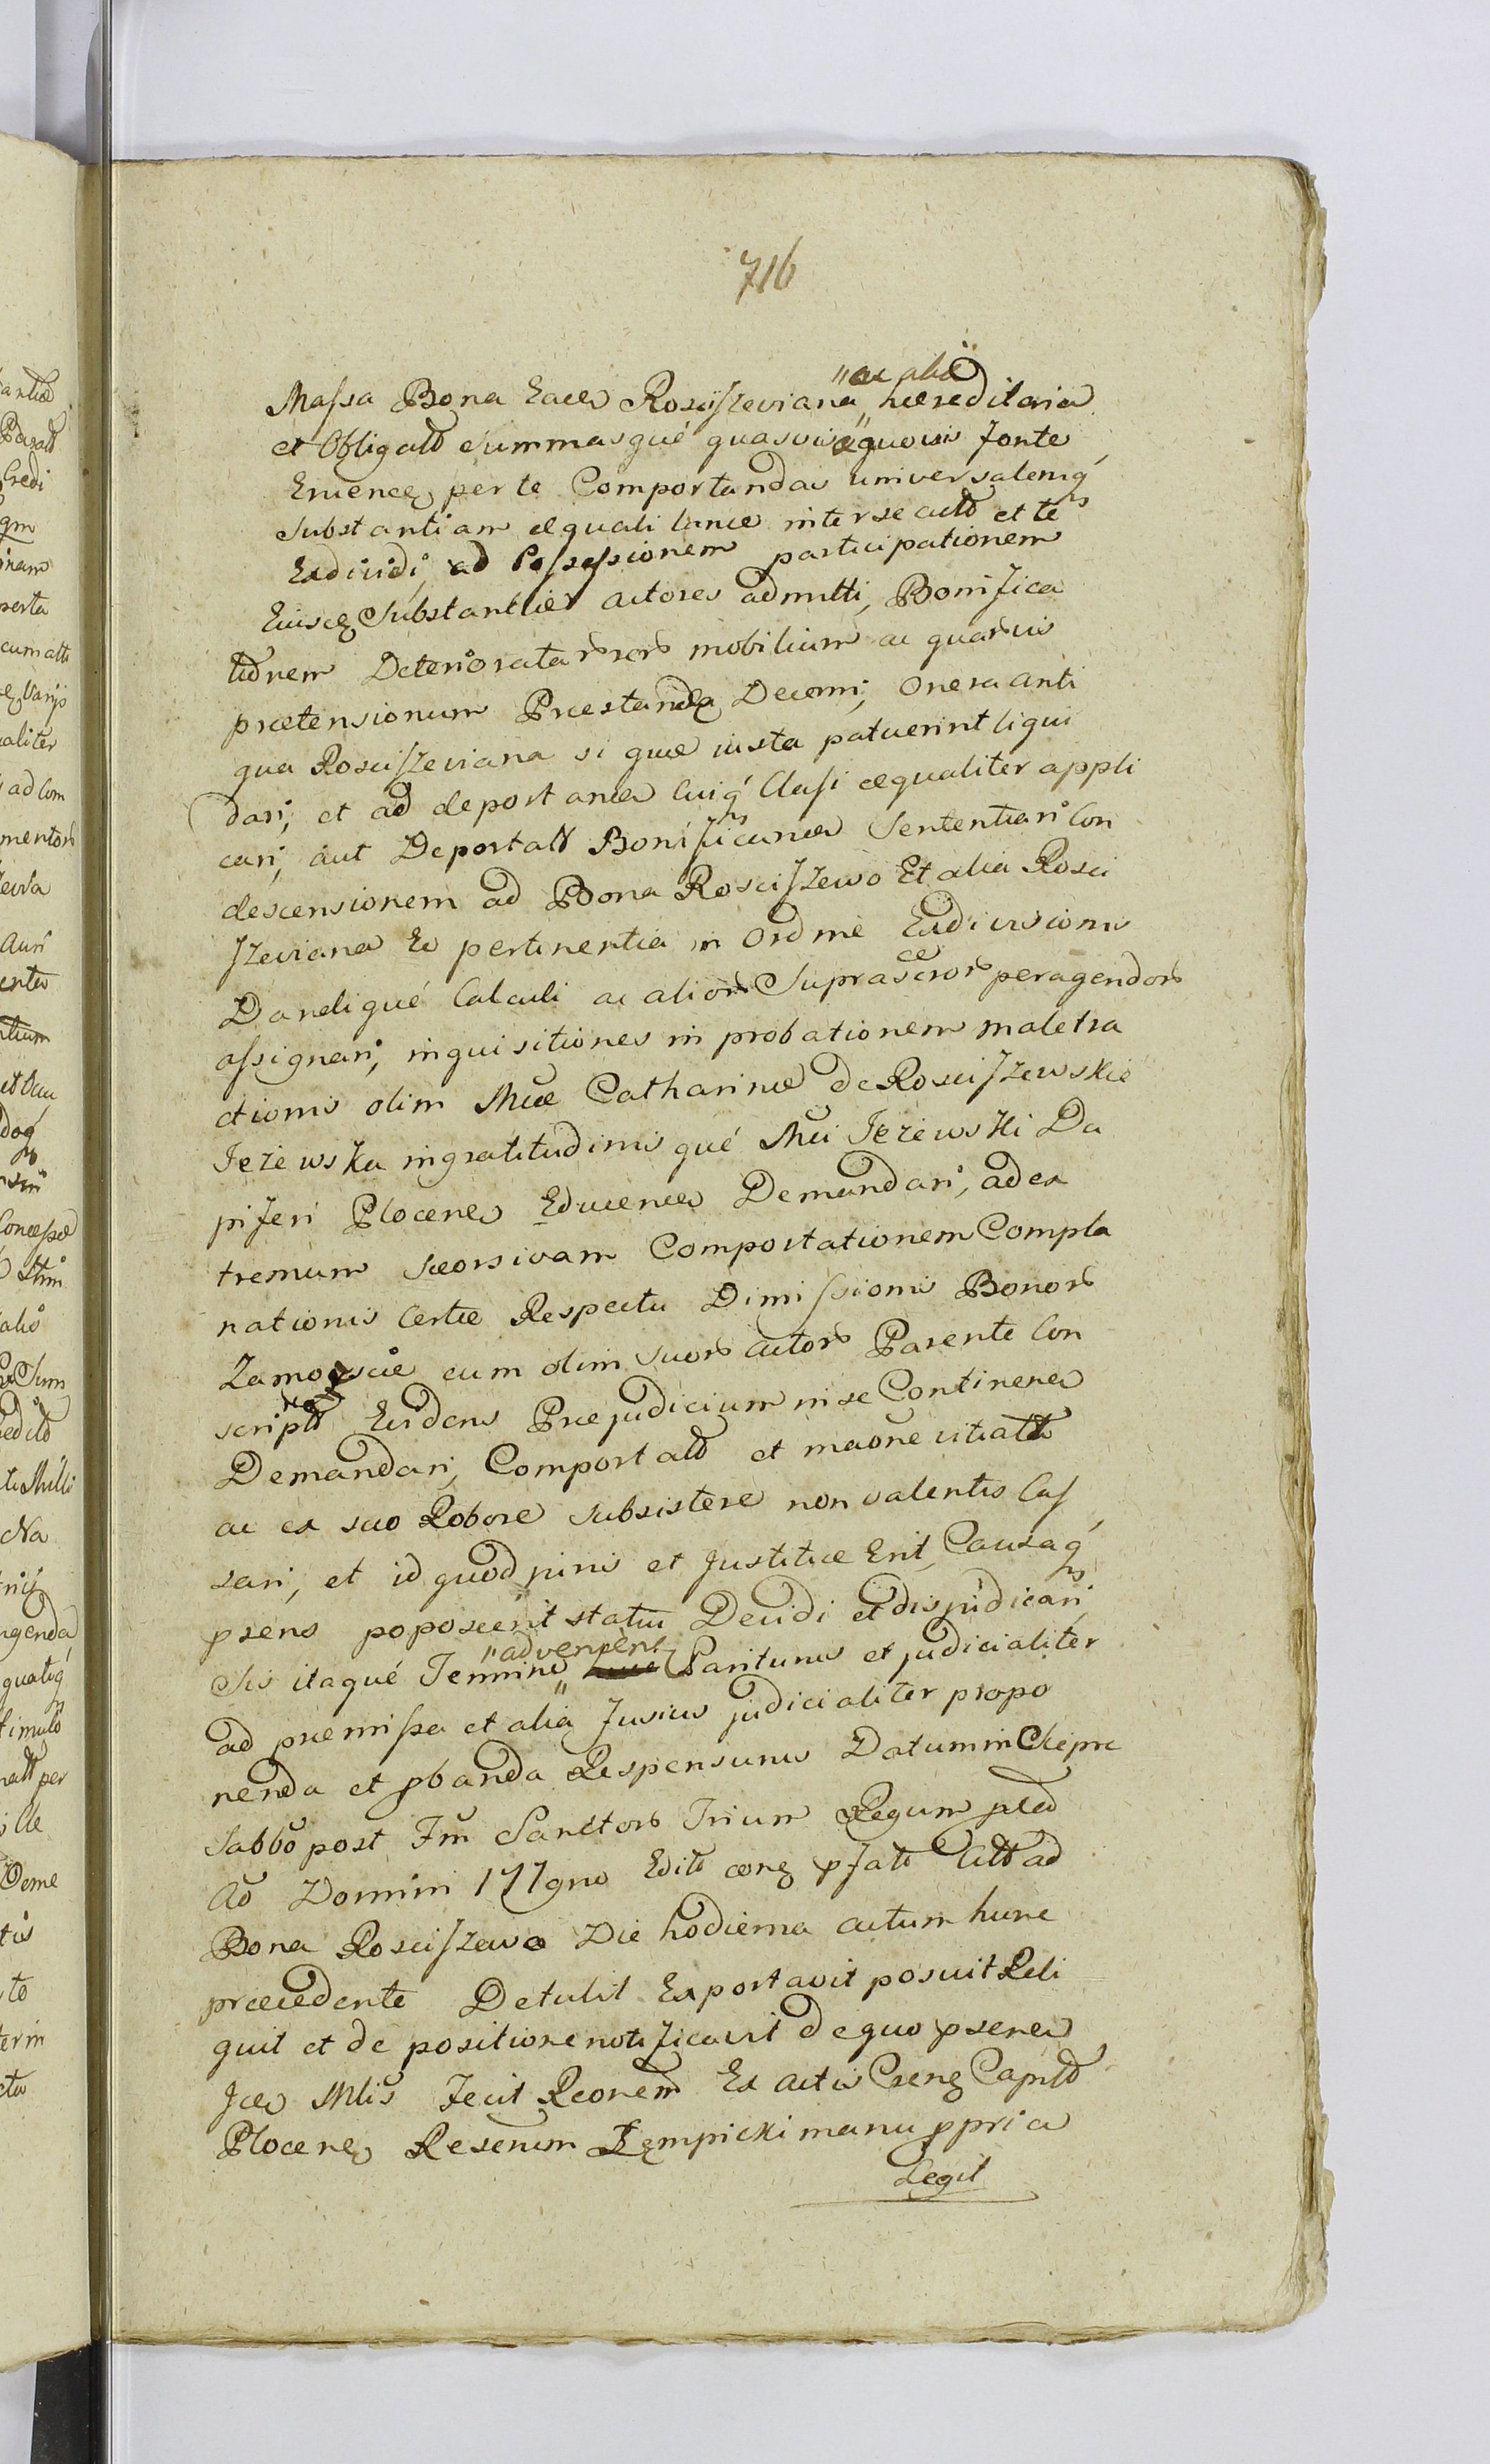 716
Massa Bona Eaces Rosciszeviana „ac alia„ haereditaria
et Obligatt Summasque quasvis e quovis fonte
Enience per te Comportandas universalemq
Substantiam aequali lance inter se actt et te
Exdividi, ad Possessionem participationem
Eiusce Substantiae actores admitti, Bonifica
tionem Deterioratarror mobilium ac quarvis
praetensionum Praestanda Decerni, Onera anti
qua Rosciszeviana si quae iusta patuerint liqui
dari, et ad deportanda Cuiq Classi aequaliter appli
cari, aut Deportatt Bonificanda Sententiari Con
descensionem ad Bona Rosciszewo Et alia Rosci
szeviana Eo pertinentia in Ordine Exdivisionis
Dandique Calculi ac alior Suprascror peragendor
assignari, inquisitiones in probationem maletra
ctionis olim Mcae Catharinae de Rosciszewskie
Jezewska ingratitudinisque Mci Jezewski Da
piferi Plocenes Educenda Demandari, ad ex
tremum Seorsivam Comportationem Compla
nationis Certae Respectu Dimissionis Bonor
Zamoscie cum olim Suor Actor Parente Con
script Evidens Praejudicium in se Continens
Demandari, Comportatt et maone vitiatt
ac ex suo Robore Subsistere non valentis Cas
sari, et id quod juris et Justitiae Erit, Causaq
psens poposcerit status Decidi et disjudicari,
Sis itaque Termino „advenient„ Pariturus et judicialiter
ad praemissa et alia fusius judicialiter propo
nenda et pbanda Responsurus Datum in
Sabbo post Fm Sanctor Trium Regum pled
Ao Domini 177gno Edit pfatt Citt ad
Bona Rosciszewo Die hodierna actum hunc
praecedente Detulit Exportavit posuit Reli
quit et de positione notificavit de quo psenes
Jces Mlis fecit Reonem Ex actis Cseng Capnlt
Plocene Resenim Lempicki manu ppria
Legit